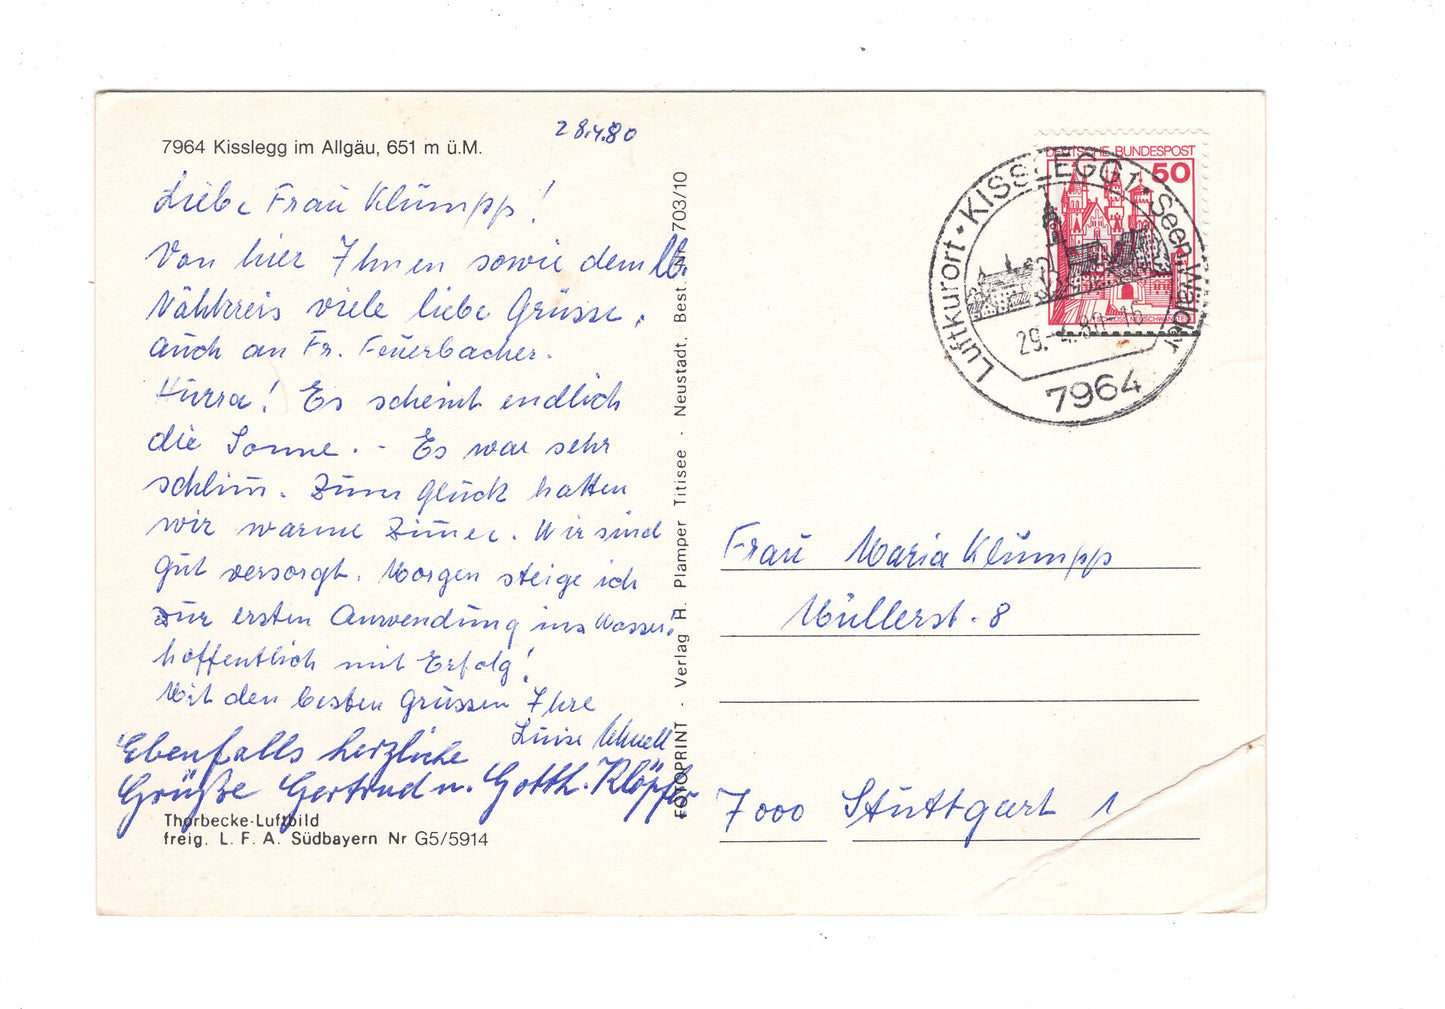 7964 Kisslegg im Allgäu, 651 m ü.M.
28.4.80
Liebe Frau Klumpp!
Von hier Ihnen sowie dem lb.
Nähkreis viele liebe Grüsse,
auch an Fr. Feuerbacher.
Hurra! Es scheint endlich
die Sonne. - Es war sehr
schlim̄. Zum Glück hatten
wir warme Zim̄er. Wir sind
gut versorgt. Morgen steige ich
zur ersten Anwendung ins Wasser!
hoffentlich mit Erfolg!
Mit den besten Grüssen Ihre
Luise
Ebenfalls herzliche
Grüße Gertrud u. Gotth. Klöpfer
Thorbecke-Luftbild
freig. L. F. A. Südbayern Nr G5/5914
FOTOPRINT · Verlag H. Plamper Titisee · Neustadt, Best. Nr. 703/10
DEUTSCHE BUNDESPOST
50
SCHLOSS NEUSCHWANSTEIN
Luftkurort · KISSLEGG 1 · Seen Wälder
29.-4.80-16
7964
Frau Maria Klumpp
Müllerst. 8
7000 Stuttgart 1